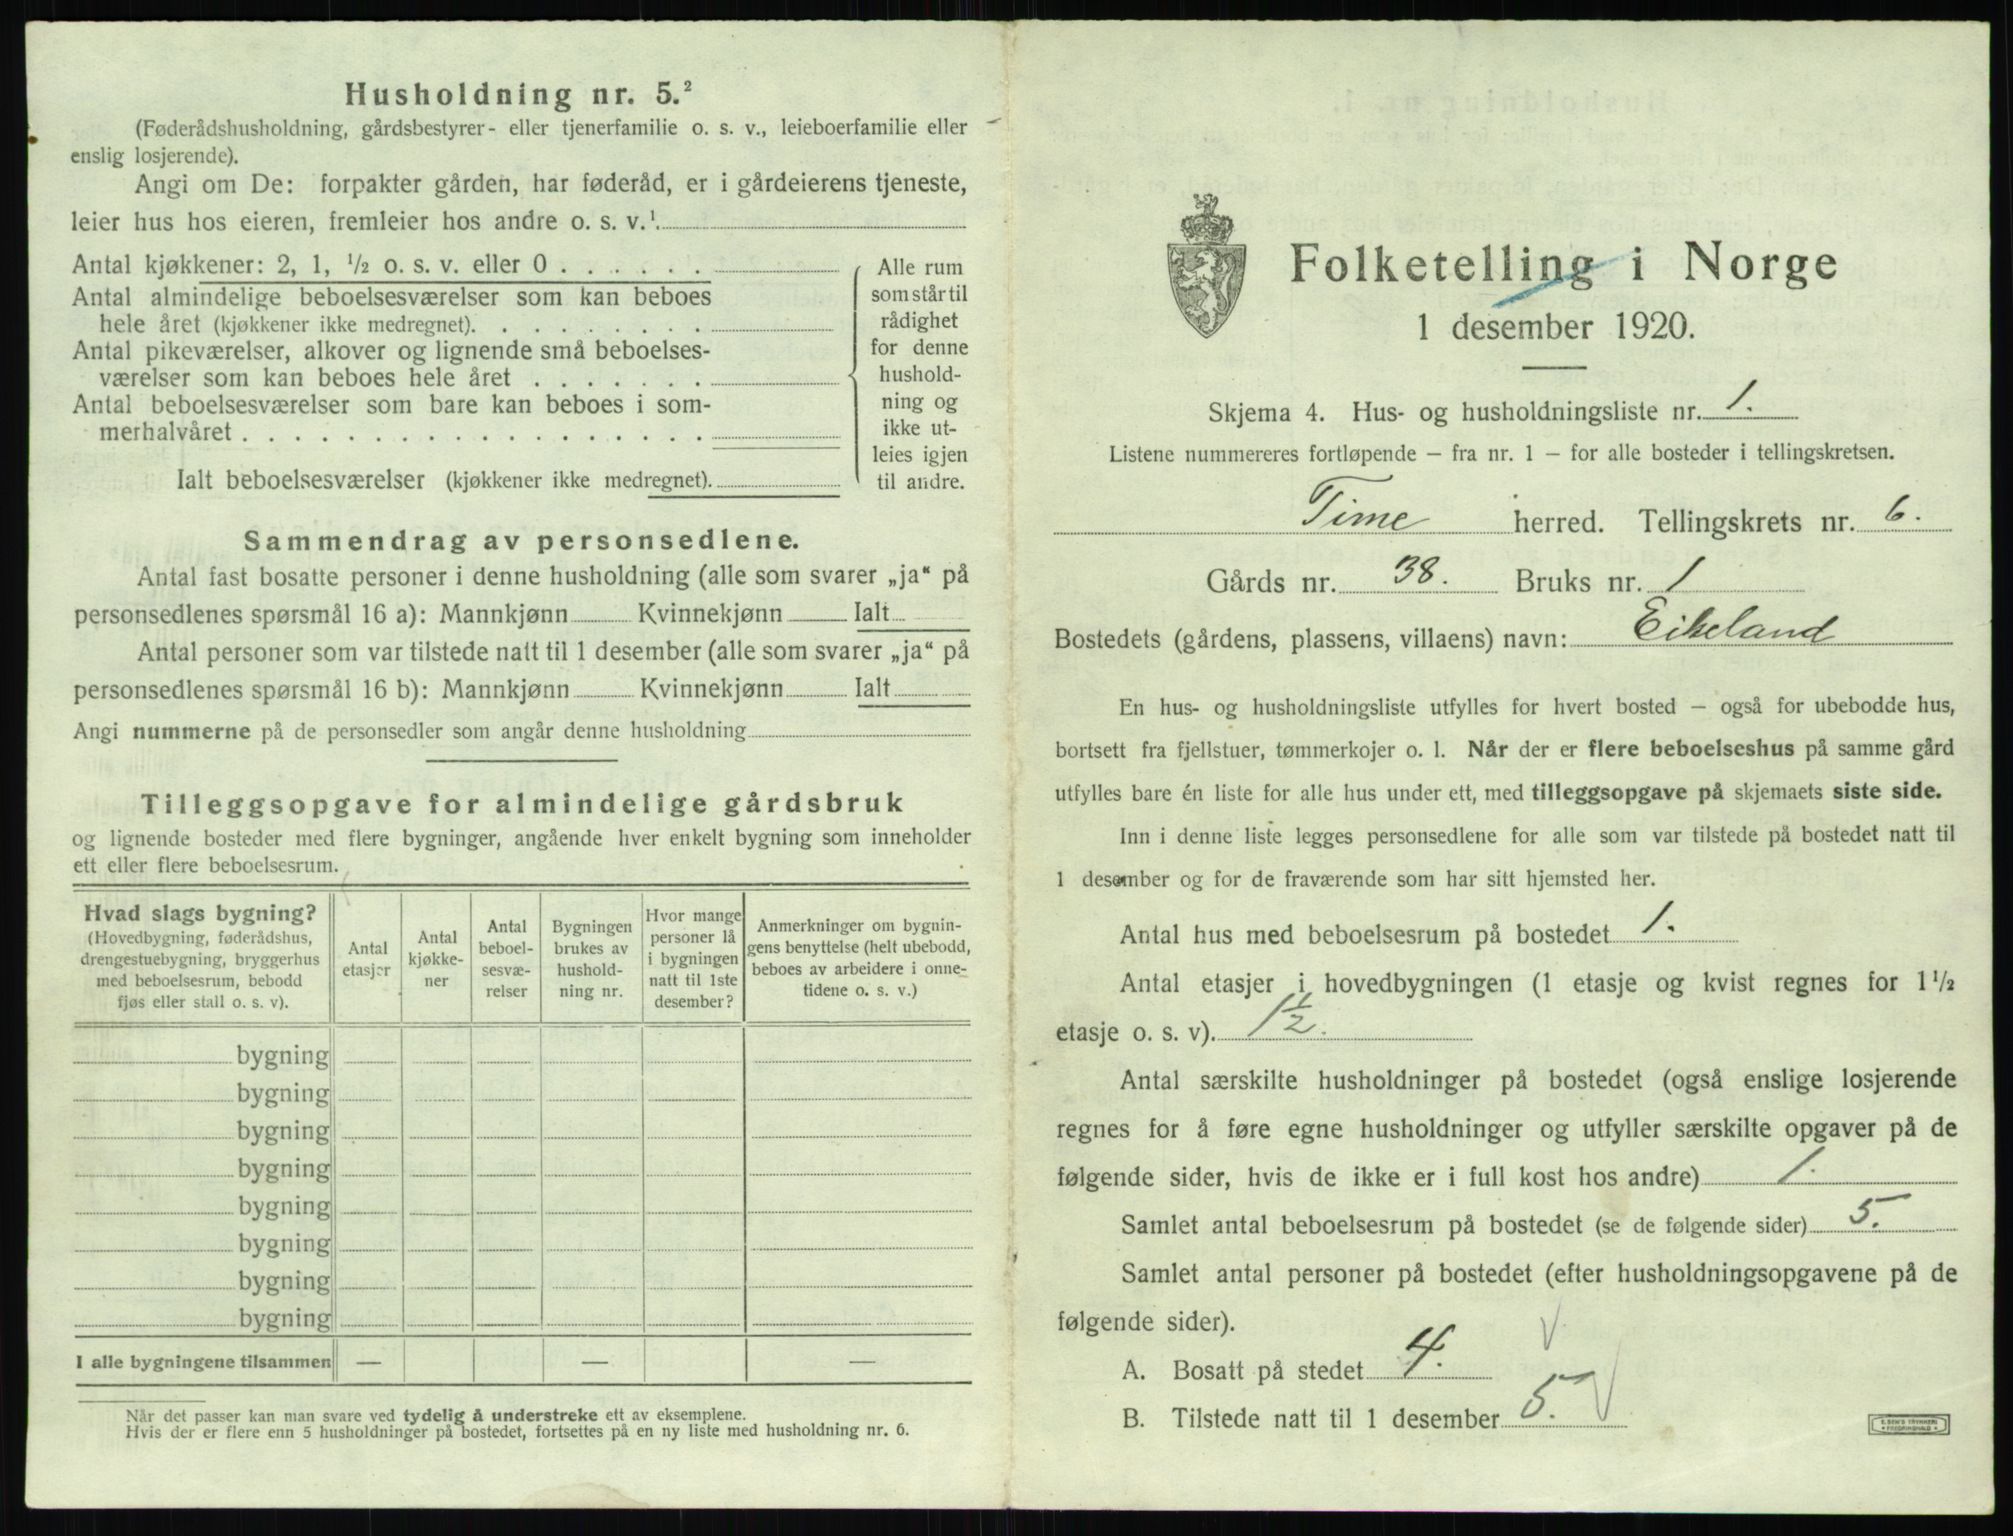 Husholdning nr. 5.²
(Føderådshusholdning, gårdsbestyrer- eller tjenerfamilie o. s. v., leieboerfamilie eller
enslig losjerende).
Angi om De: forpakter gården, har føderåd, er i gårdeierens tjeneste,
leier hus hos eieren, fremleier hos andre o. s. v.¹
Antal kjøkkener: 2, 1, ½ o. s. v. eller 0 . . . . . .
Antal almindelige beboelsesværelser som kan beboes
hele året (kjøkkener ikke medregnet). . . . . . . . .
Antal pikeværelser, alkover og lignende små beboelses-
værelser som kan beboes hele året . . . . . . .
Antal beboelsesværelser som bare kan beboes i som-
merhalvåret . . . . . . . . . . . . . . . . . .
Ialt beboelsesværelser (kjøkkener ikke medregnet).
Alle rum
som står til
rådighet
for denne
hushold-
ning og
ikke ut-
leies igjen
til andre.
Sammendrag av personsedlene.
Antal fast bosatte personer i denne husholdning (alle som svarer „ja“ på
personsedlenes spørsmål 16 a): Mannkjønn Kvinnekjønn Ialt
Antal personer som var tilstede natt til 1 desember (alle som svarer „ja“ på
personsedlenes spørsmål 16 b): Mannkjønn Kvinnekjønn Ialt
Angi nummerne på de personsedler som angår denne husholdning
Tilleggsopgave for almindelige gårdsbruk
og lignende bosteder med flere bygninger, angående hver enkelt bygning som inneholder
ett eller flere beboelsesrum.
Hvad slags bygning?
(Hovedbygning, føderådshus,
drengestuebygning, bryggerhus
med beboelsesrum, bebodd
fjøs eller stall o. s. v).
Antal
etasjer
Antal
kjøkke-
ner
Antal
beboel-
sesvæ-
relser
Bygningen
brukes av
hushold-
ning nr.
Hvor mange
personer lå
i bygningen
natt til 1ste
desember?
Anmerkninger om bygnin-
gens benyttelse (helt ubebodd,
beboes av arbeidere i onne-
tidene o. s. v.)
bygning
bygning
bygning
bygning
bygning
bygning
bygning
bygning
I alle bygningene tilsammen — — —
Når det passer kan man svare ved tydelig å understreke ett av eksemplene.
Hvis der er flere enn 5 husholdninger på bostedet, fortsettes på en ny liste med husholdning nr. 6.
Folketelling i Norge
1 desember 1920.
Skjema 4. Hus- og husholdningsliste nr. 1.
Listene nummereres fortløpende — fra nr. 1 — for alle bosteder i tellingskretsen.
Time herred. Tellingskrets nr. 6.
Gårds nr. 38. Bruks nr. 1
Bostedets (gårdens, plassens, villaens) navn: Eikeland
En hus- og husholdningsliste utfylles for hvert bosted — også for ubebodde hus,
bortsett fra fjellstuer, tømmerkojer o. l. Når der er flere beboelseshus på samme gård
utfylles bare én liste for alle hus under ett, med tilleggsopgave på skjemaets siste side.
Inn i denne liste legges personsedlene for alle som var tilstede på bostedet natt til
1 desember og for de fraværende som har sitt hjemsted her.
Antal hus med beboelsesrum på bostedet 1.
Antal etasjer i hovedbygningen (1 etasje og kvist regnes for 1½
etasje o. s. v). 1½.
Antal særskilte husholdninger på bostedet (også enslige losjerende
regnes for å føre egne husholdninger og utfyller særskilte opgaver på de
følgende sider, hvis de ikke er i full kost hos andre) 1.
Samlet antal beboelsesrum på bostedet (se de følgende sider) 5.
Samlet antal personer på bostedet (efter husholdningsopgavene på de
følgende sider).
A. Bosatt på stedet 4.
B. Tilstede natt til 1 desember 5.